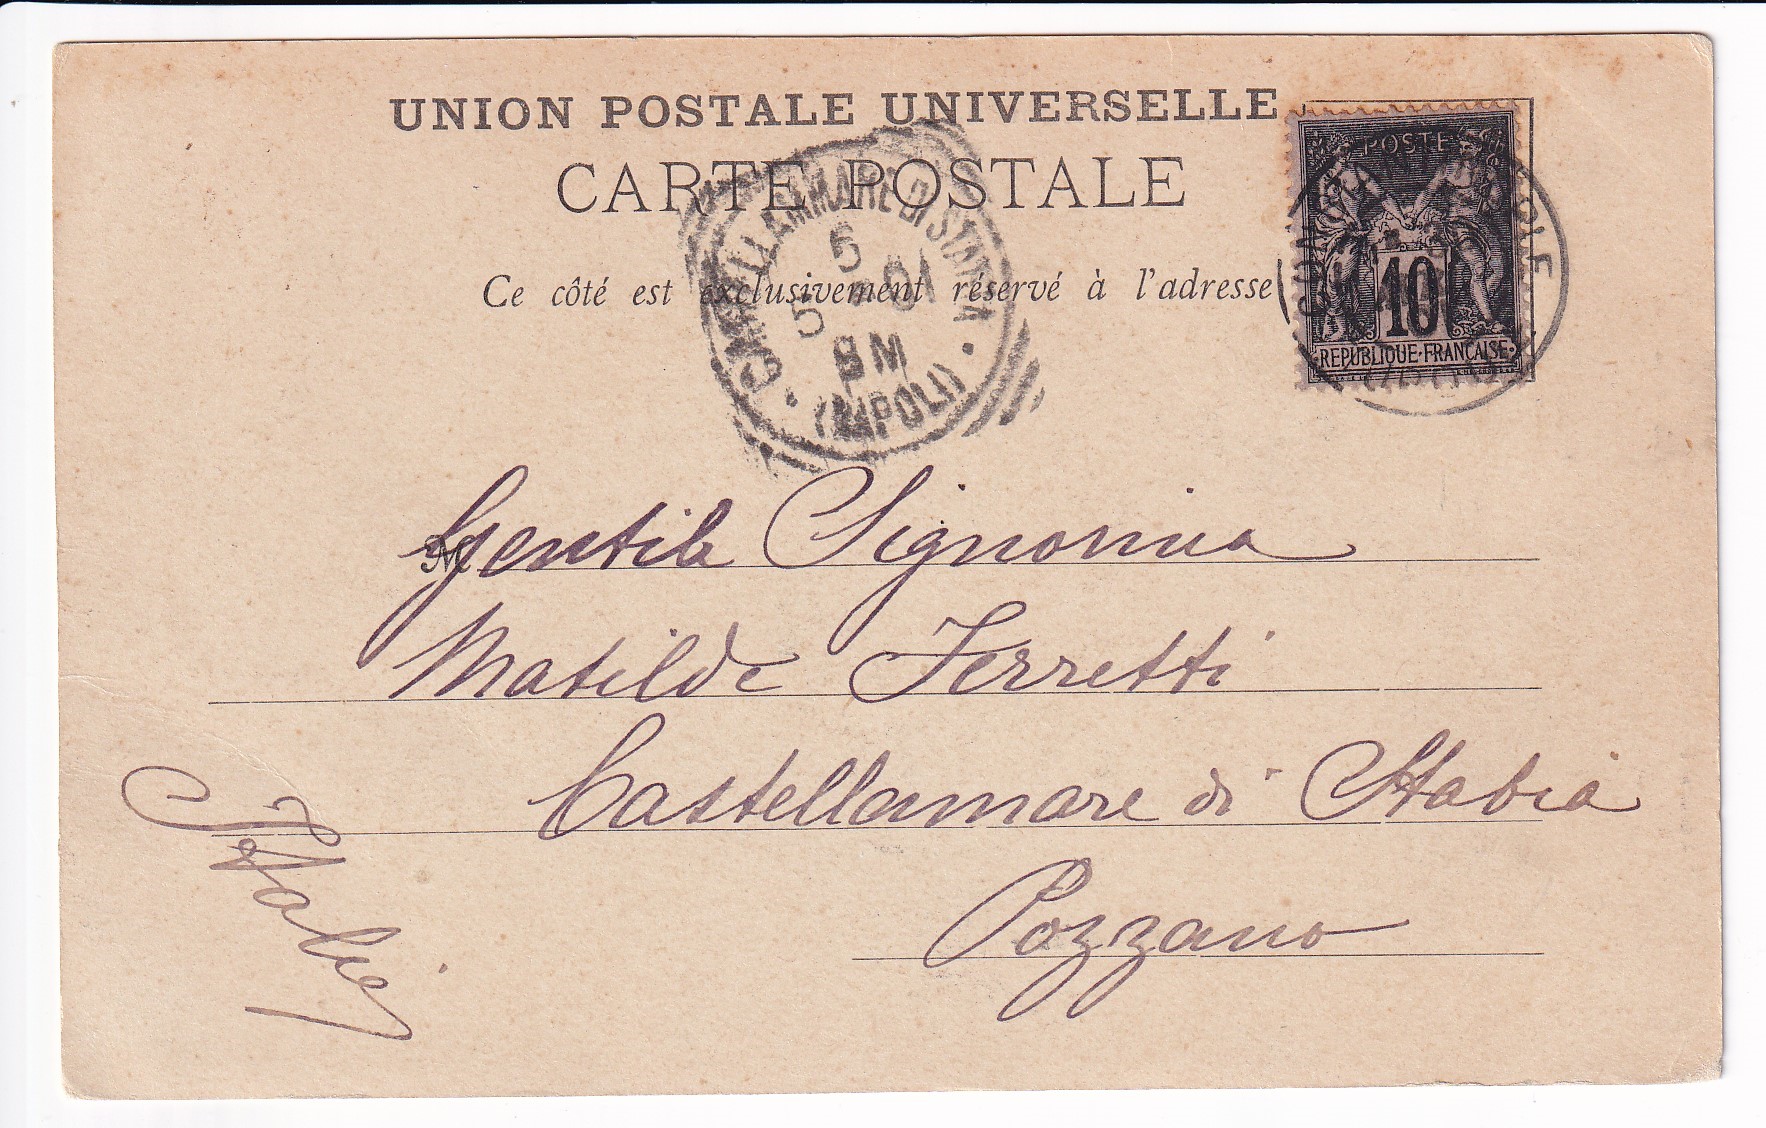 UNION POSTALE UNIVERSELLE
CARTE POSTALE
Ce côté est exclusivement réservé à l'adresse
POSTE
10
REPUBLIQUE·FRANÇAISE
CASTELLAMMARE DI STABIA
5
5 01
8 M
(NAPOLI)
M
Gentile Signorina
Matilde Ferretti
Castellamare di Stabia
Pozzano
Italie